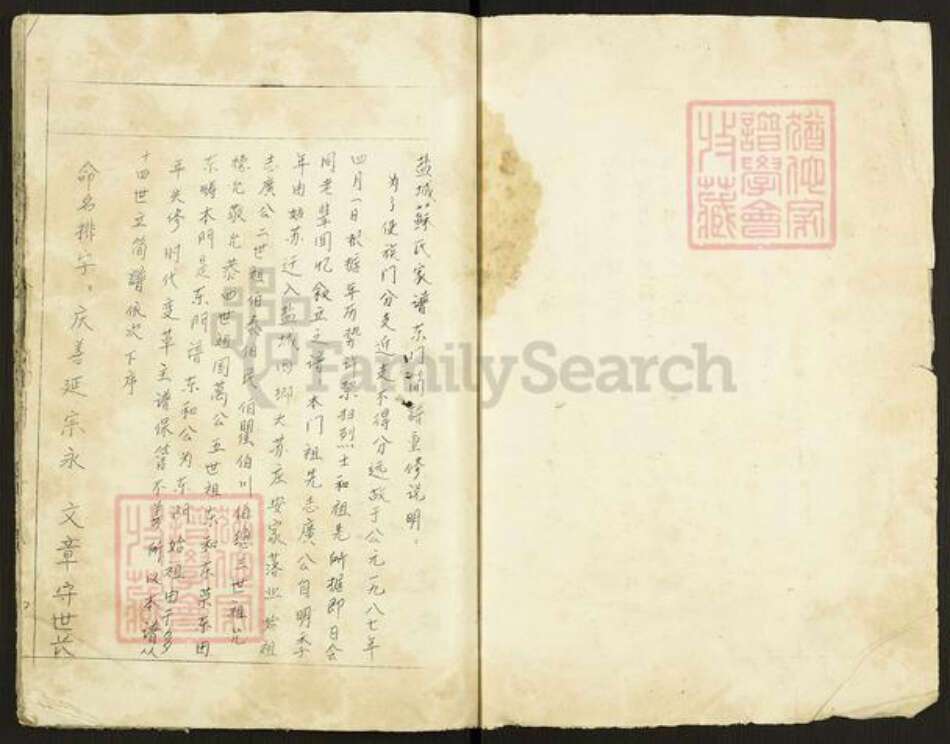 盐城苏氏家谱东门间诗重修说明。
为了使族门分支近支不得分远故于公元一九八七年
四月一日根据年历势计祭扫烈士和祖先所据即日会
同老辈回忆叙立之谱本门祖先志廣公自明季
年由姑苏迁入盐城西乡大苏庄安家落业始祖
志廣公二世祖伯泰伯民伯盟伯川伯聪三世祖允
德允敬允恭四世祖国萬公五世祖东和东荣东田
东畴本门是东门谱东和公为东门始祖由于多
年失修时代变革主谱保管不善所以本谱从
十四世立简谱依次下序
命名排字。庆善延宗永 文章守世长
猶他家
譜學會
收藏
猶他家
譜學會
收藏
FamilySearch